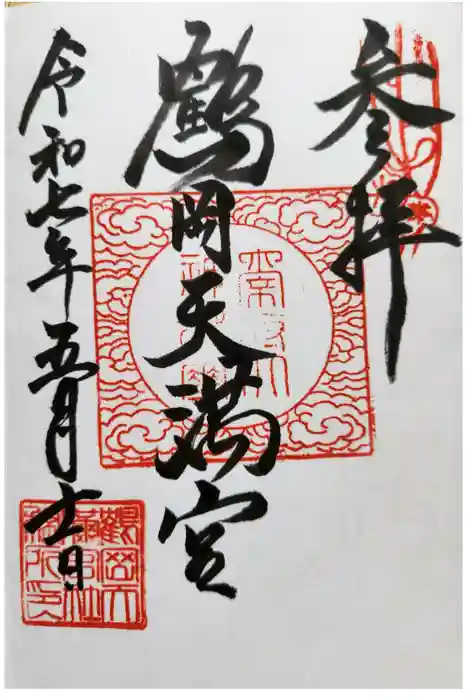 参拝
鶴岡天満宮
令和七年五月十一日